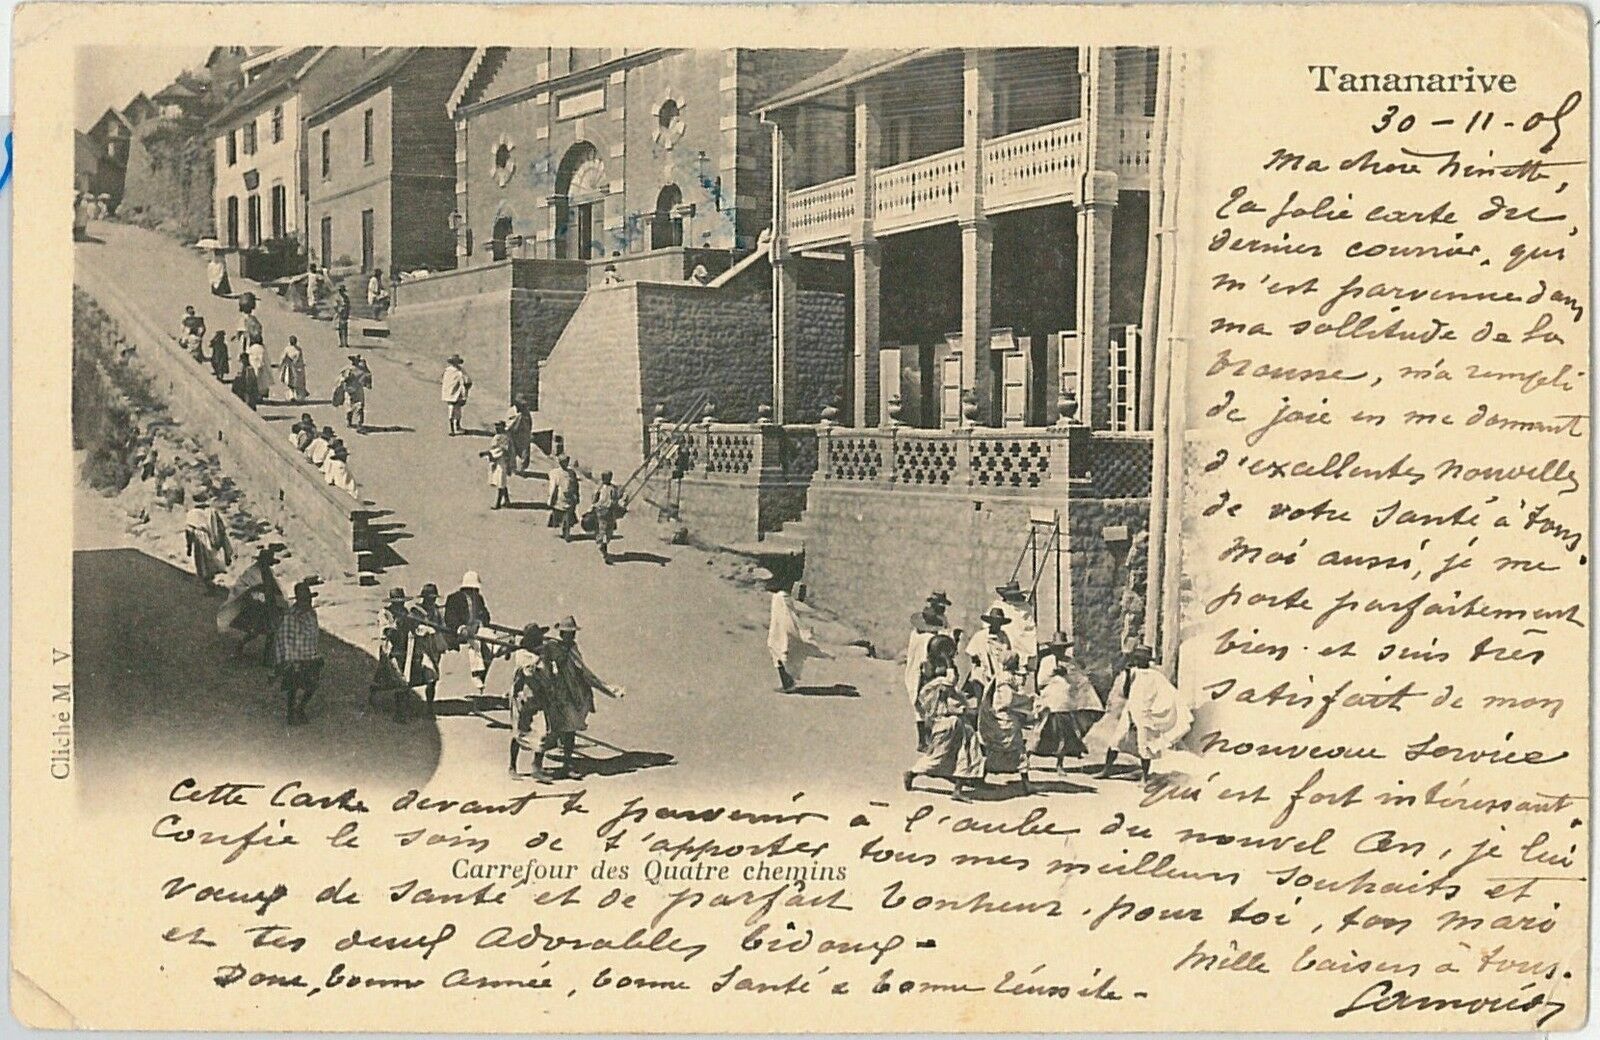 Tananarive
30-11-05
Ma chère Ninette,
La jolie carte du
dernier courrier, qui
m'est parvenue dans
ma sollitude de la
brousse, m'a rempli
de joie en me donnant
d'excellentes nouvelles
de votre santé à tous.
Moi aussi, je me
porte parfaitement
bien et suis très
satisfait de mon
nouveau service
qui est fort intéressant.
Cette Carte devant te parvenir à l'aube du nouvel An, je lui
Confie le soin de t'apporter tous mes meilleurs souhaits et
Carrefour des Quatre chemins
vœux de santé et de parfait bonheur, pour toi, ton mari
et tes deux adorables bidoux -
Mille baisers à tous.
Donc, bonne Année, bonne Santé & bonne réussite -
Cliché M V